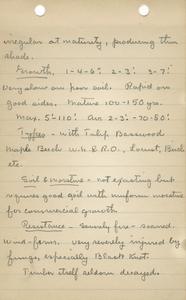 irregular at maturity, producing thin
shade.
Growth, 1-4-6" 2-3' 3-7'
Very slow on poor soil. Rapid on
good sites. Mature 100-150 yrs.
Max. 5'-110' Av. 2-3'-70-80'
Types - with Tulip Basswood
Maple Beech W. & R.O., Locust, Birch
etc.
Soil & moisture - not exacting but
requires good soil with uniform moisture
for commercial growth
Resistance - severely fire-scarred.
Wind-firm. Very severely injured by
fungi, especially Black Knot.
Timber itself seldom decayed.